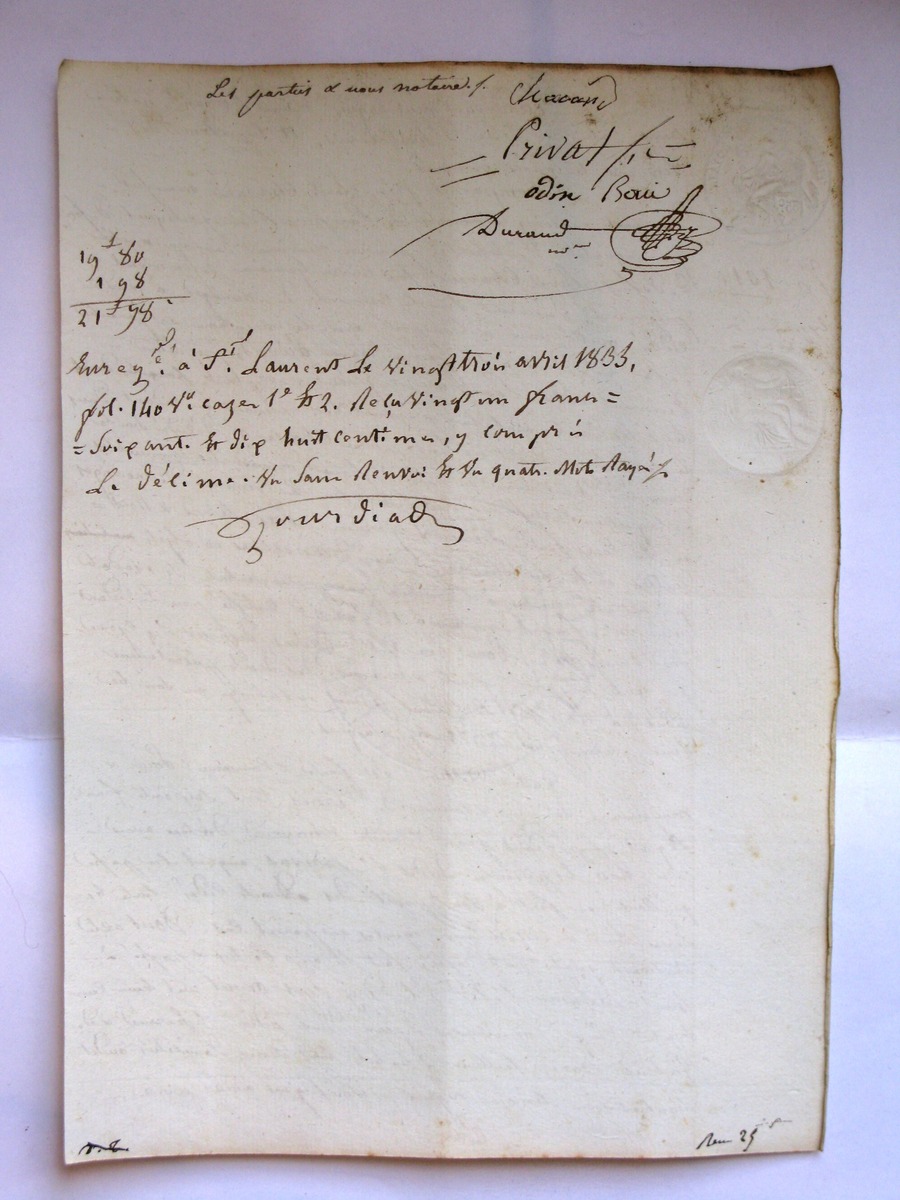 Les partis & nous notaire./.
Chavand
Privat
odin
Durand
nre
19f 80
1 98
21f 98c
Enregé. à St. Laurent Le vingt trois avril 1833,
fol. 140 Vo. cazes 1e Et 2. Reçu vingt un francs =
= soixant. Et dix huit centimes, y compris
Le décime. Un sans Renvoi Et Vu quatr. Mots Rayés
Jourdiad
25